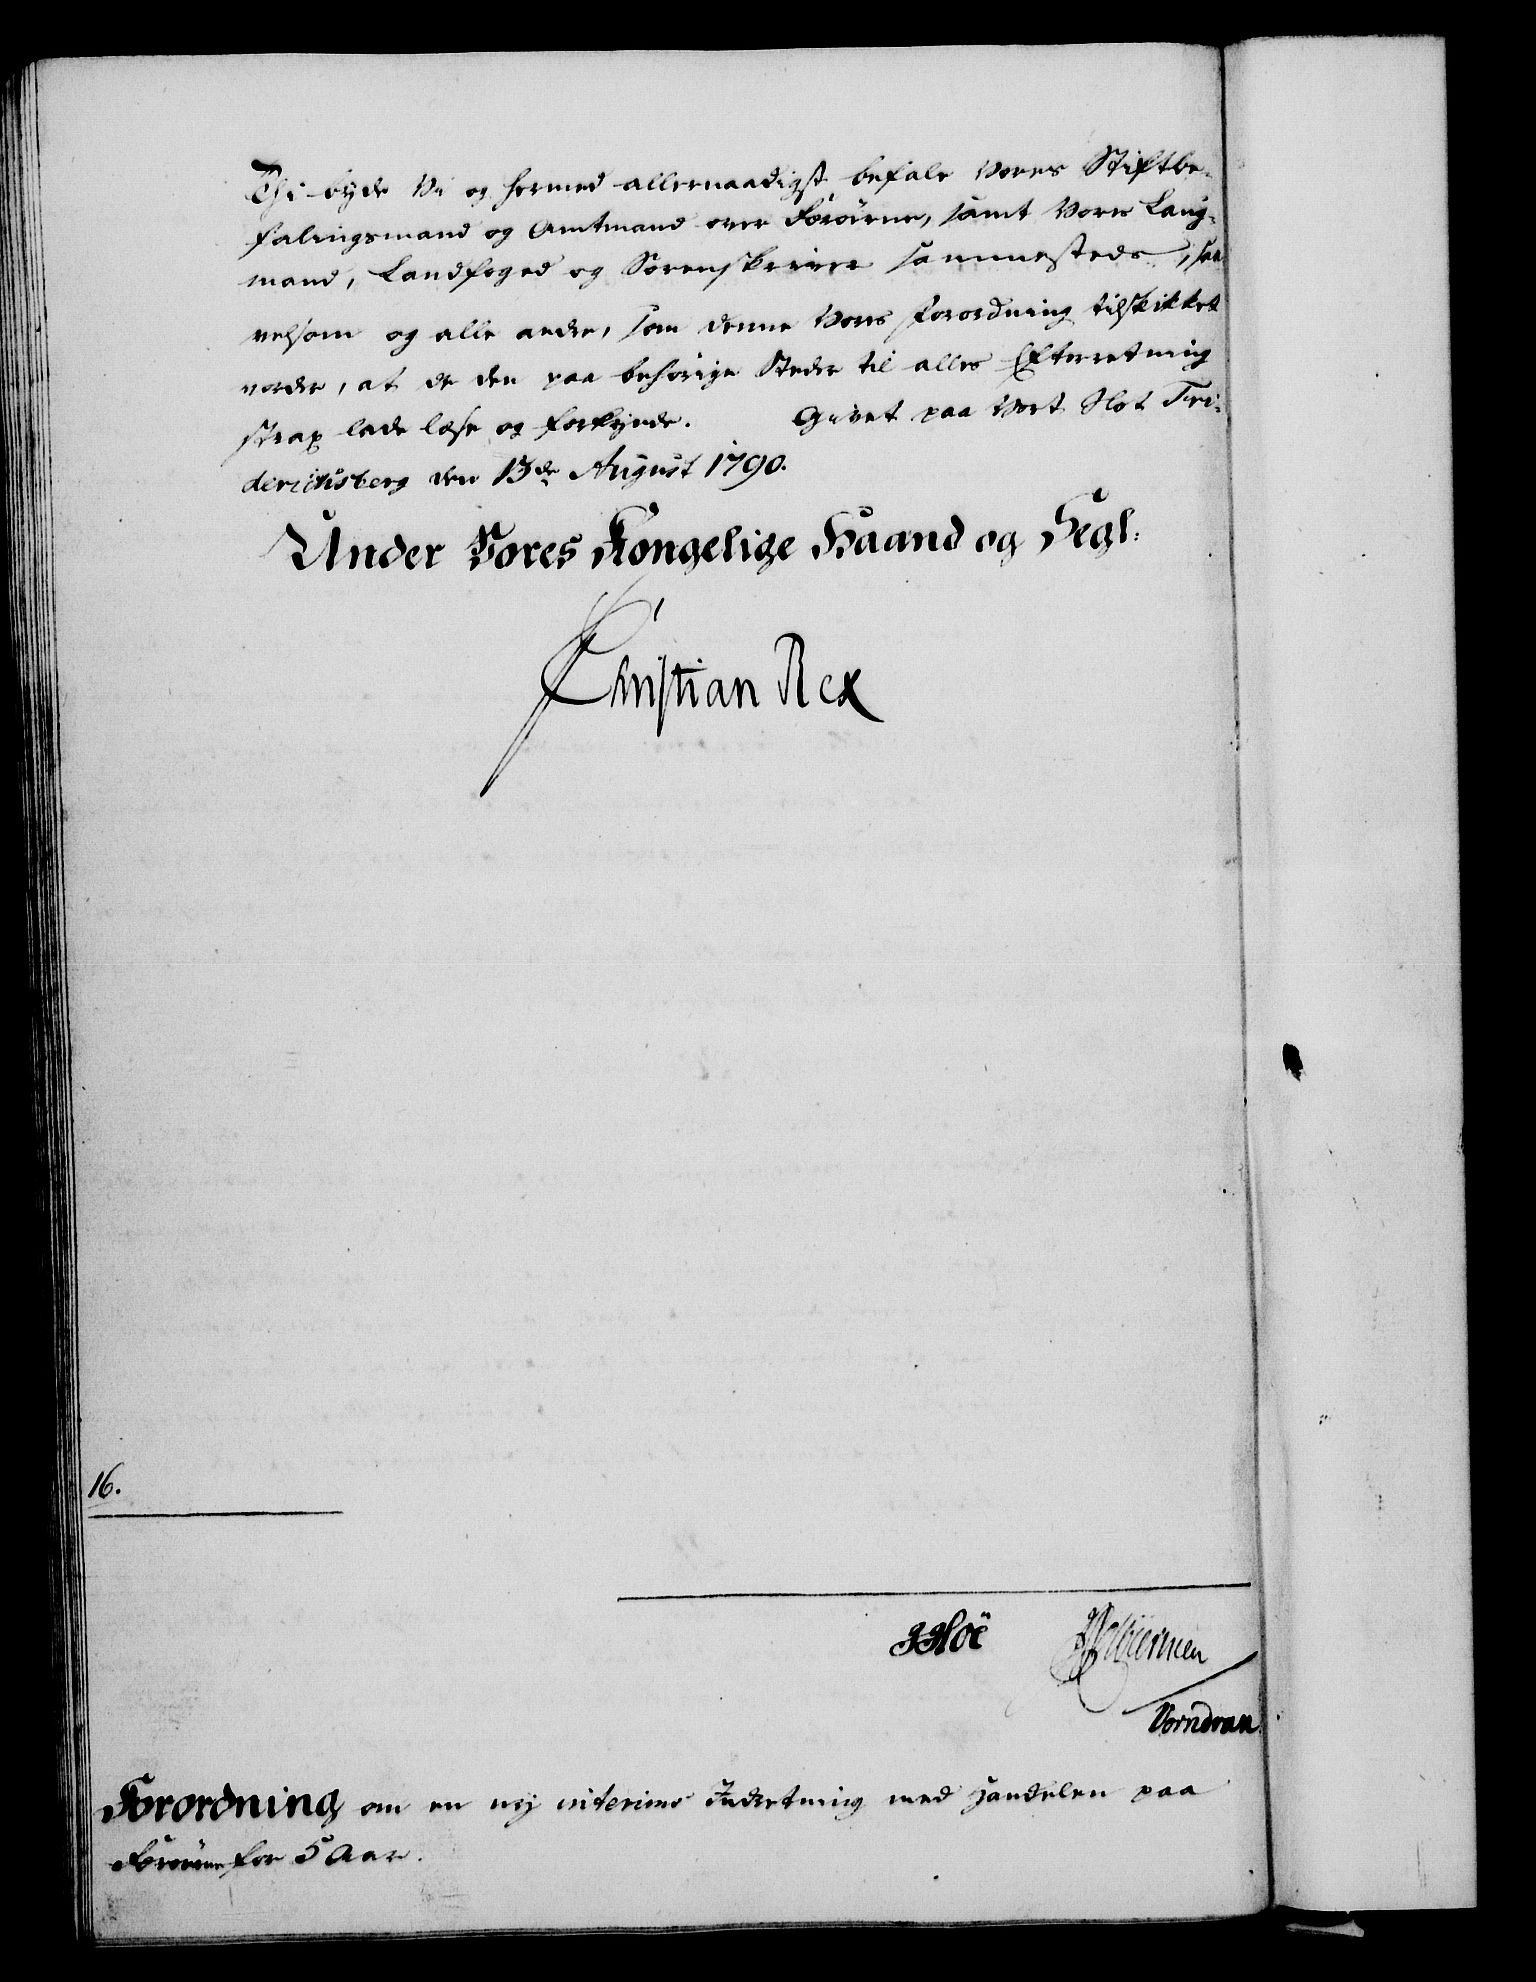 Thi byde Vi og hermed allernaadigst befale Vores Stiftbe-
falingsmand og Amtmand over Færøerne, samt Vores Laug-
mand, Landfoged og Sorenskriver sammesteds, saa
velsom og alle andre, som denne Vores Forordning tilskikket
vorder, at de den paa behørige Steder til alles Efterretning
strax lade læse og forkynde. Givet paa Vort Slot Fri-
derichsberg den 13de August 1790.
Under Vores Kongelige Haand og Segl.
Christian Rex
16.
Hoë
Vorndran
Forordning om en ny interims Indretning med Handelen paa
Færøerne for 5 Aar.